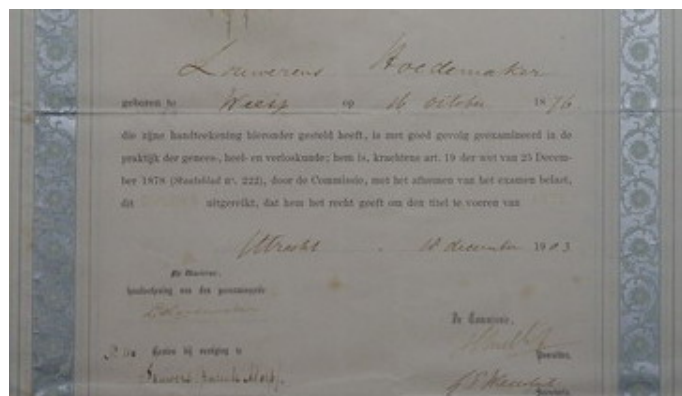 Louwerens Hoedemaker
geboren te Weesp op 16 October 1876
die zijne handteekening hieronder gesteld heeft, is met goed gevolg geëxamineerd in de
praktijk der genees-, heel- en verloskunde; hem is, krachtens art. 19 der wet van 25 Decem-
ber 1878 (Staatsblad nº. 222), door de Commissie, met het afnemen van het examen belast,
dit uitgereikt, dat hem het recht geeft om den titel te voeren van
Utrecht, 18 december 1903
handteekening van den geëxamineerde
De Commissie,
Gezien bij vestiging te